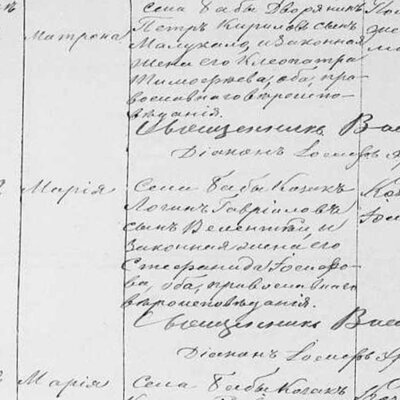 Матрона
Села Бабы Дворянинъ
Петръ Кириловъ сынъ
и законная
жена его Клеопатра
Тимофѣева, оба пра-
вославнаго вѣроиспо-
вѣданія.
Священникъ Вас
Діаконъ Іосифъ
Марія
Села Бабы Козакъ
Логинъ Гавріиловъ
сынъ Велентѣй, и
законная жена его
Стефанида Іосифо-
ва, оба, православнаго
вѣроисповѣданія.
Священникъ Васи
Діаконъ Іосифъ
Марія
Села Бабы Козакъ